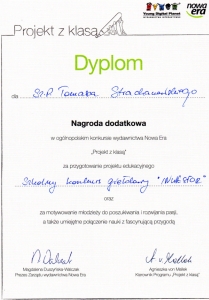 Projekt z klasą
Young Digital Planet
nowa era
Dyplom
dla
Nagroda dodatkowa
w ogólnopolskim konkursie wydawnictwa Nowa Era
„Projekt z klasą”
za przygotowanie projektu edukacyjnego
Szkolny konkurs giełdowy "INWESTOR"
oraz
za motywowanie młodzieży do poszukiwania i rozwijania pasji,
a także umiejętne połączenie nauki z fascynującą przygodą
Magdalena Duszyńska-Walczak
Agnieszka von Mallek
Prezes Zarządu wydawnictwa Nowa Era
Kierownik Programu „Projekt z klasą”